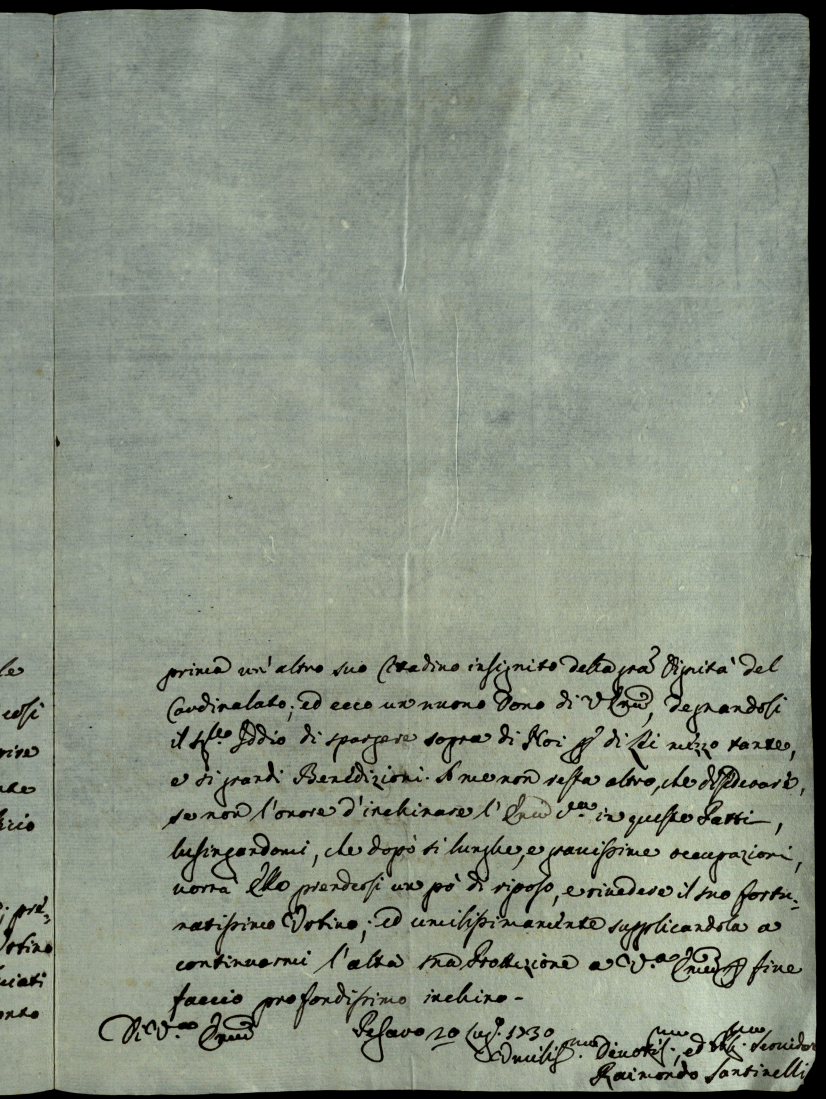 le
così
prima un' altro suo Cittadino insignito della gra͠ Dignità del
Cardinalato; ed ecco un nuovo Dono di V Em͠a, degnandosi
il Sig.re Iddio di spargere sopra di Noi p͠ di Lei mezzo tante,
e sì grandi Benedizioni. A me non resta altro, che desiderare,
se non l'onore d'inchinare l' Em͠a V.ra in queste Parti,
lusingandomi, che dopò sì lunghe, e gravissime occupazioni,
vorrà Ella prendersi un pò di riposo, e rivedere il suo fortu=
natissimo Urbino; ed umilissimamente supplicandola a
continuarmi l'alta sua Protezione a V.ra Em͠a p͠ fine
faccio profondissimo inchino -
Di V.ra Em͠a Pesaro 20 Lug.o 1730
Umiliss.mo Devotis.mo, ed Obb.mo Servidor
Raimondo Santinelli